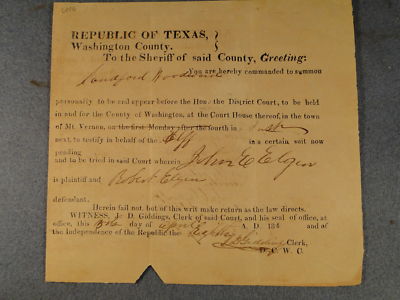 REPUBLIC OF TEXAS,
Washington County.
To the Sheriff of said County, Greeting:
You are hereby commanded to summon
Sandford Woodward
personally to be and appear before the Hon. the District Court, to be held
in and for the County of Washington, at the Court House thereof, in the town
of Mt. Vernon, on the first Monday after the fourth in
next, to testify in behalf of the in a certain suit now
pending
and to be tried in said Court wherein John C Elgin
is plaintiff and Robert Elgin
defendant.
Herein fail not, but of this writ make return as the law directs.
WITNESS, J. D. Giddings, Clerk of said Court, and his seal of office, at
office, this day of April A. D. 184 and of
the Independence of the Republic the
J D Giddings Clerk,
D. C. W. C.